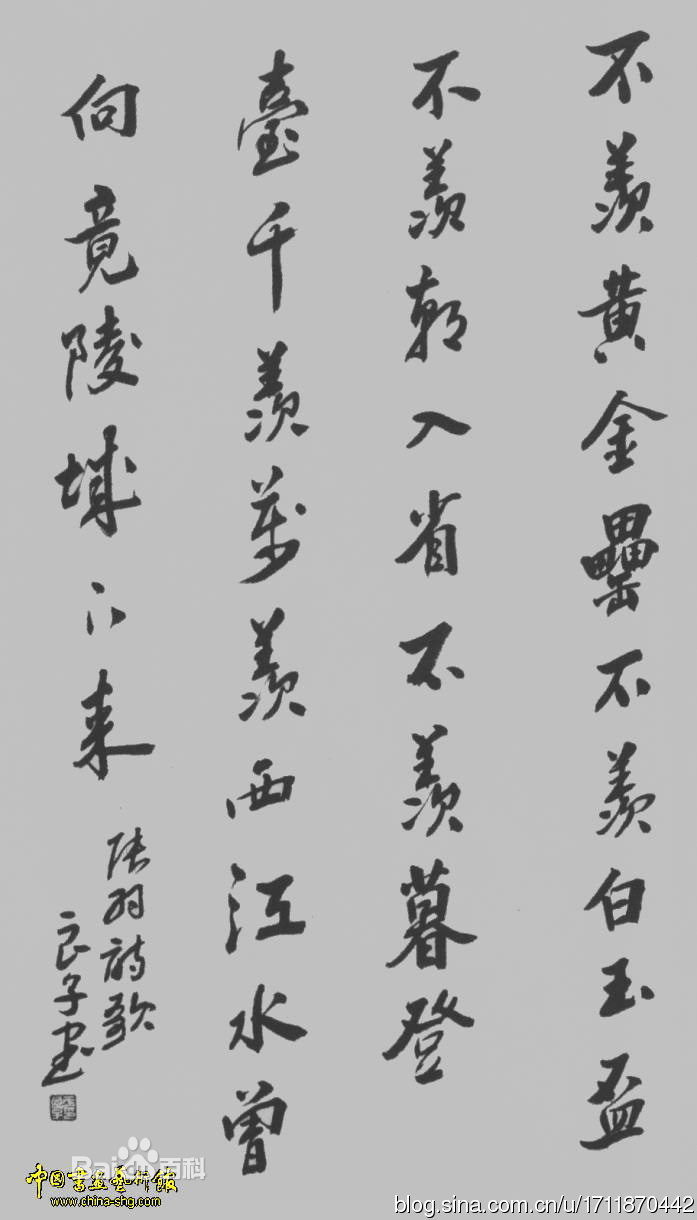 不羡黄金罍不羡白玉盃
不羡朝入省不羡暮登
臺千羡萬羡西江水曾
向竟陵城下来
陆羽詩歌
良子書
Baidu百科
中国书画艺术馆
www.china-shg.com
blog.sina.com.cn/u/1711870442